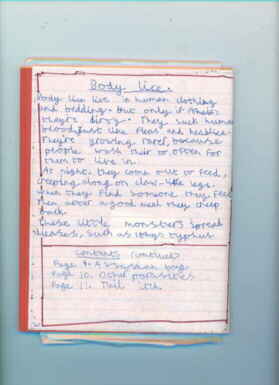 Body lice.
Body lice live in human clothing
and bedding. But only if
they're dirty. They suck human
blood just like fleas and headlice.
They're growing rarer, because
people wash their to often for
them to live in.
At night, they come out to feed,
creeping along on claw-like legs.
when they find someone they feed
then never a good meal they creep
back.
These little monsters spread
diseases, such as typhus.
Contents (continued)
Page 9. Assyrian bugs
Page 10. Other parasites
Page 11.